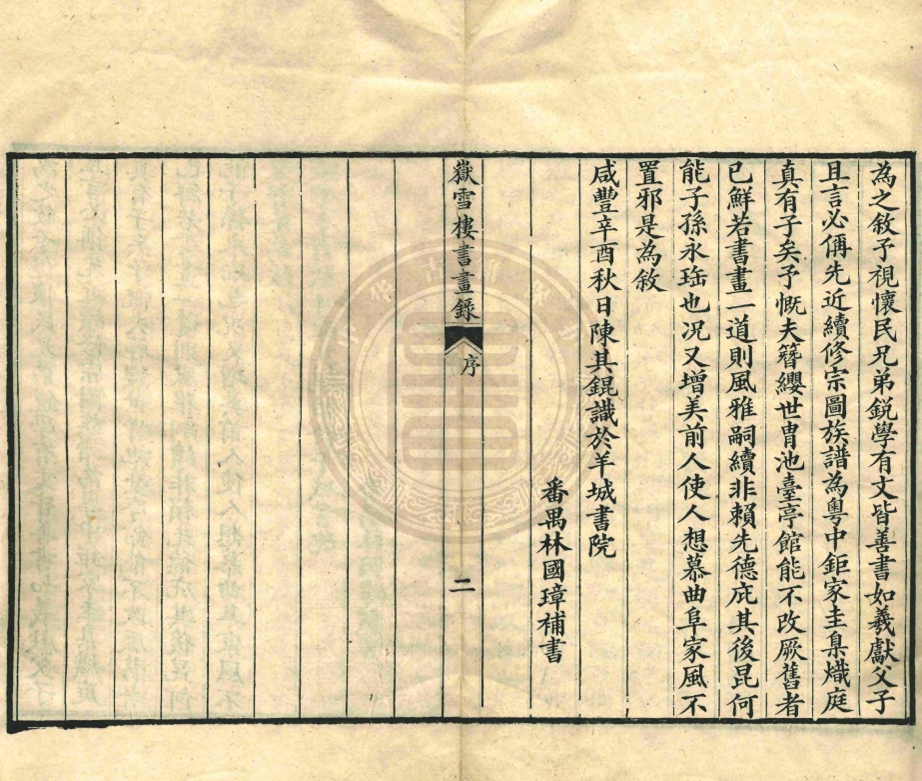 為之敘予視懷民兄弟銳學有文皆善書如羲獻父子
且言必偁先近續修宗圖族譜為粵中鉅家圭臬熾庭
真有子矣予慨夫簪纓世胄池臺亭館能不改厥舊者
已鮮若書畫一道則風雅嗣續非賴先德庇其後昆何
能子孫永珤也况又增美前人使人想慕曲阜家風不
置邪是為敘
咸豐辛酉秋日陳其錕識於羊城書院
番禺林國璋補書
嶽雪樓書畫錄
序
二